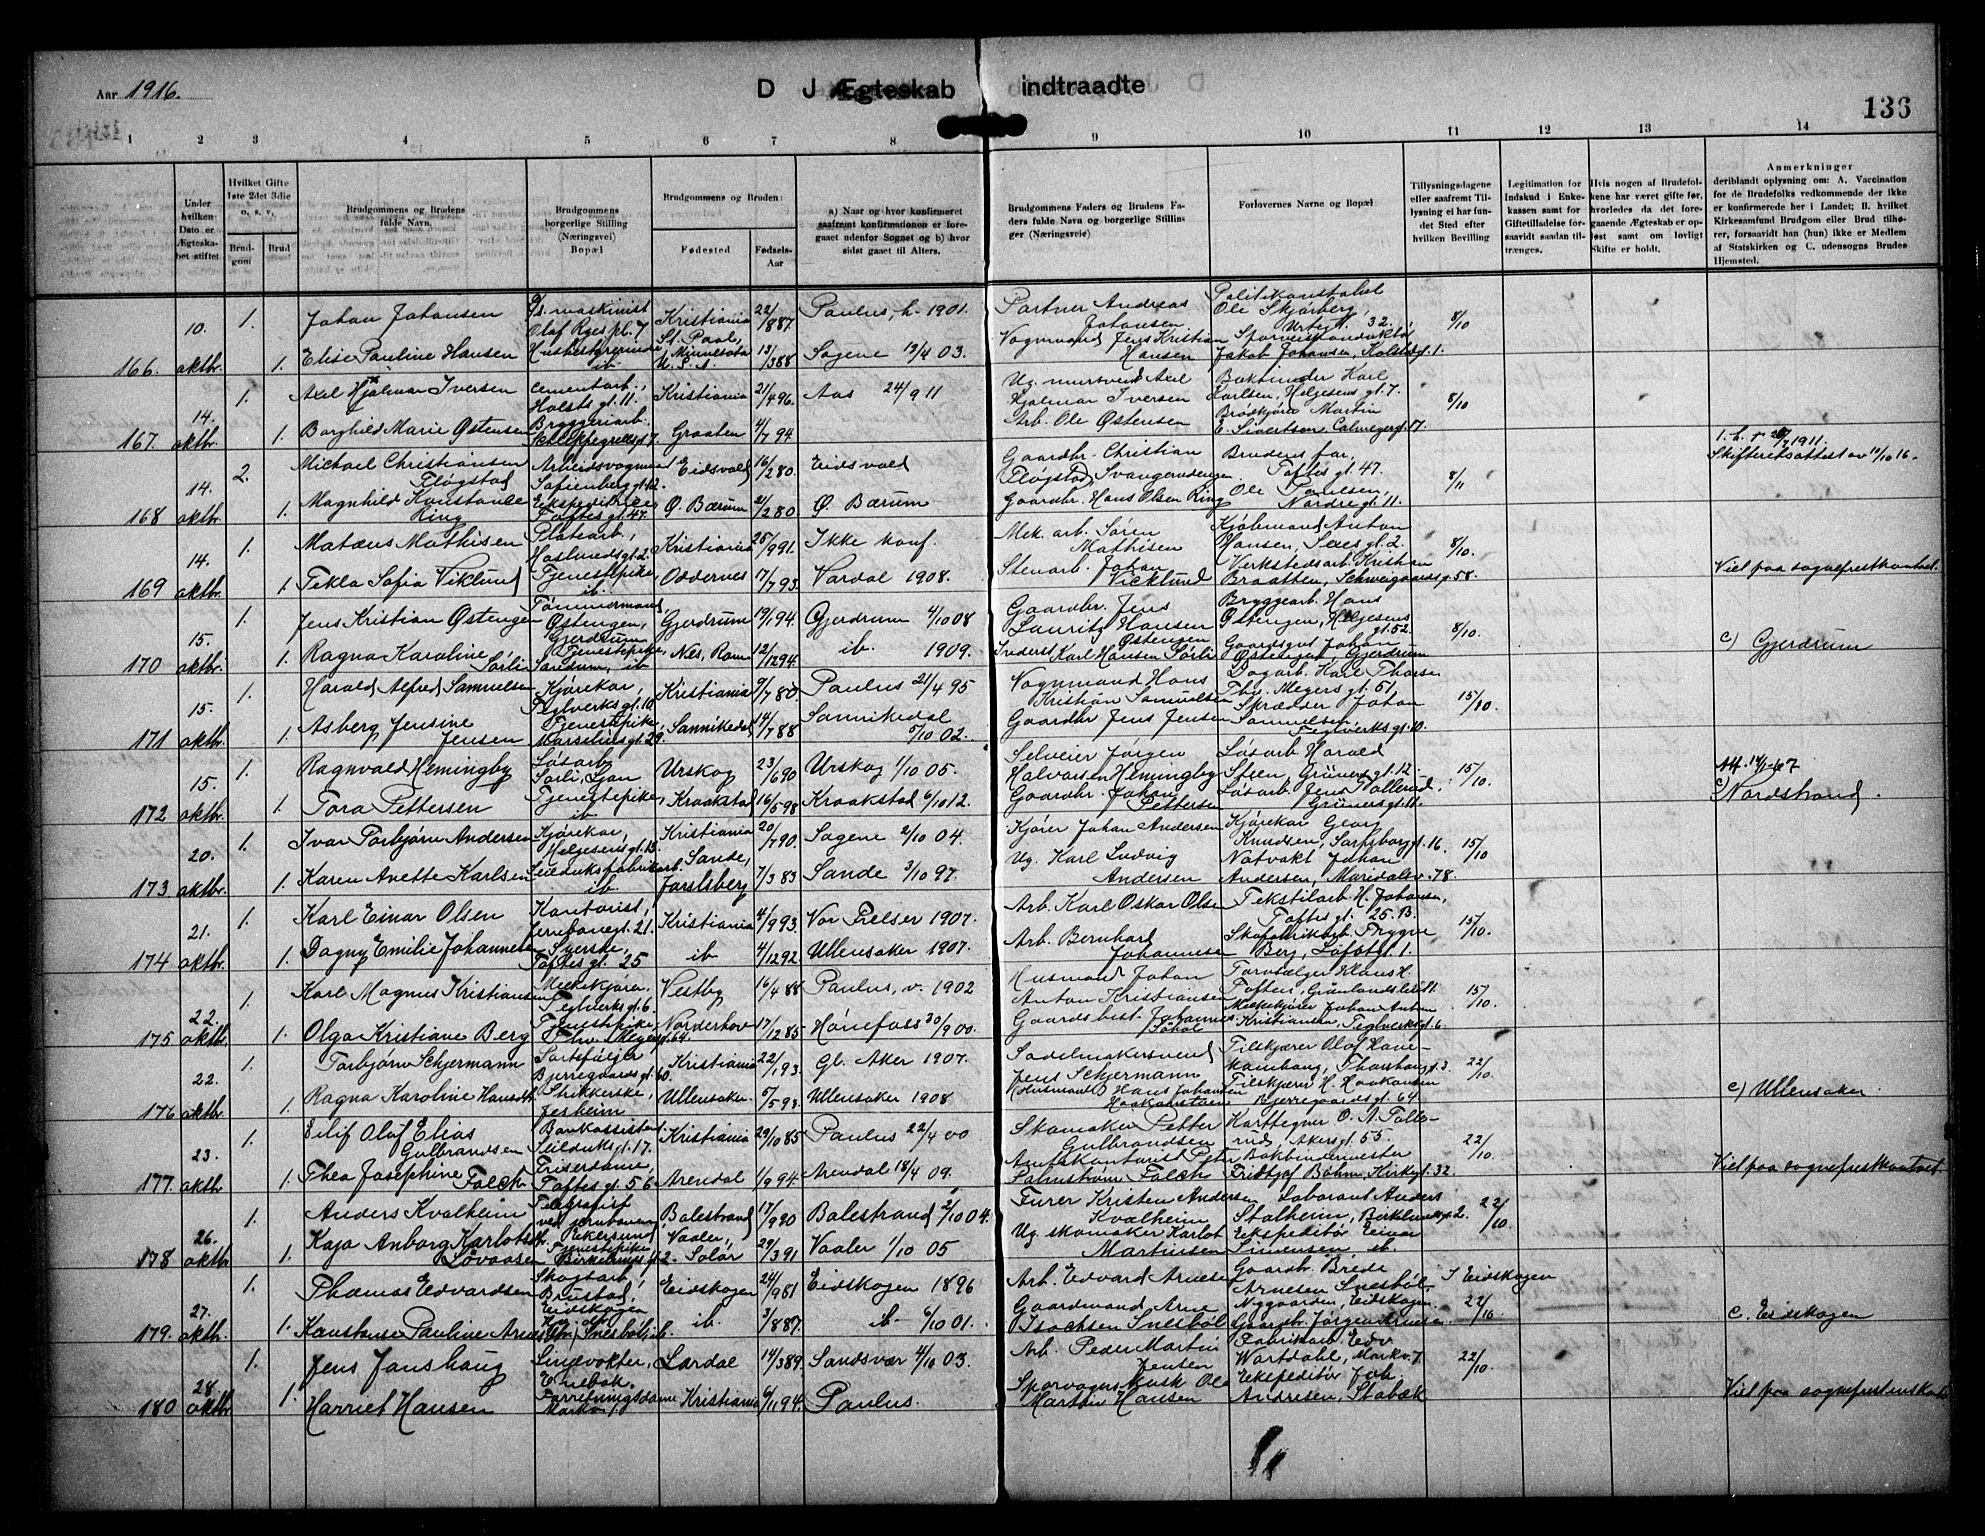 Aar 1916.
D J Ægteskab indtraadte
136
1 2 3 4 5 6 7 8 9 10 11 12 13 14
Under hvilken Dato er Ægteskabet stiftet
Hvilket Gifte 1ste 2det 3die o. s. v.
Brudgom Brud
Brudgommens og Brudens fulde Navn.
Brudgommens borgerlige Stilling (Næringsvei) Bopæl
Brudgommens og Bruden:
Fødested Fødsels-Aar
a) Naar og hvor konfirmeret saafremt konfirmationen er foregaaet udenfor Sognet og b) hvor sidst gaaet til Alters.
Brudgommens Faders og Brudens Faders fulde Navn og borgerlige Stillinger (Næringsveie)
Forlovernes Navne og Bopæl
Tillysningsdagene eller saafremt Tillysning ei har fundet Sted efter hvilken Bevilling
Legitimation for Indskud i Enkekassen samt for Giftetilladelse forsaavidt saadan tiltrænges.
Hvis nogen af Brudefolkene har været gifte før, hvorledes da det foregaaende Ægteskab er opløst samt om lovligt Skifte er holdt.
Anmerkninger
deriblandt oplysning om: A. Vaccination for de Brudefolks vedkommende der ikke er konfirmerede her i Landet; B. hvilket Kirkesamfund Brudgom eller Brud tilhører, forsaavidt han (hun) ikke er Medlem af Statskirken og C. udensogns Brudes Hjemsted.
166. 10. oktbr. 1. Johan Johansen maskinist Olaf Ryes pl. 7 Kristiania 22/887. Paulus, h. 1901. Portner Andreas Johansen. Politikonstabel Ole Skjørberg, Urtegt. 32. 8/10
1. Elise Pauline Hansen Husbestyrerinde ib. St. Paul, Minnesota U. S. A. 13/388 Sagene 13/4 03. Vognmand Jens Kristian Hansen Jakob Johansen, Kolstadgt. 1.
167. 14. oktbr. 1. Axel Hjalmar Iversen Cementarb., Holsts gt. 11. Kristiania 21/496. Aas 24/9 11 Ug. mursvend Axel Hjalmar Iversen Bokbinder Karl Karlsen, Helgesens gt. 7. 8/10
1. Borghild Marie Østensen Bryggeriarb. Schleppegrellsgt. 7. Graaten 4/7 94 Arb. Ole Østensen Brødkjører Martin E. Sivertsen, Calmeyersgt. 17.
168 14. oktbr. 2. Michael Christiansen Fløgstad Arbeidsvognmand Sofienberg gt. 12. Eidsvold 16/280. Eidsvold Gaardbr. Christian Fløgstad, Svangerudengen Brudens far, Toftes gt. 47. 8/11 Skifteretsattest av 11/10 16.
1. Magnhild Konstance Ring Ekspeditrice Toftes gt. 47. Ø. Bærum 21/280 Ø. Bærum Gaardbr. Hans Olsen Ring Ole Poulsen, Nordregt. 11.
169 14. oktbr. 1. Matæus Mathisen Platearb., Kristiania 25/991. Ikke konf. Mek. arb. Søren Mathisen Kjøbmand Anton Hansen, Sexes gt. 2. 8/10.
1. Tekla Sofia Viklund Tjenestepike, ib. Oddernes 17/793. Vardal 1908. Stenarb. Johan Vicklund Verkstedsarb. Kristian Braatten, Schweigaardsgt. 58. Viet paa sogneprestkontoret.
170 15. oktbr. 1. Jens Kristian Østengen Tømmermand, Østengen, Gjerdrum Gjerdrum 19/194. Gjerdrum 4/10 08 Gaardbr. Jens Lauritz Hansen Østengen Bryggearb. Hans Østengen, Helgesens gt. 52. 8/10.
1. Ragna Karoline Sørli Tjenestepike, ib Nes, Rom. 12/1294. ib. 1909. Inderst Karl Hansen Sørli Gaardsgut Johan Østengen, Gjerdrum c) Gjerdrum
171 15. oktbr. 1. Harald Alfred Samuelsen Kjørekar, Teglverks gt. 10 Kristiania 9/780. Paulus 21/4 95 Vognmand Hans Kristian Samuelsen Dagarb. Karl Thorsen Thv. Meyers gt. 51 15/10.
1. Asberg Jensine Jensen Tjenestepike, Marselius gt. 29. Sannikedal 14/788 Sannikedal 5/10 02. Gaardbr. Jens Jensen Skrædder Johan Samuelsen, Teglverksgt. 10.
172 15. oktbr. 1. Ragnvald Hemingby Løsarb. Sørli, Ljan Urskog 23/690 Urskog 1/10 05. Selveier Jørgen Halvorsen Hemingby Løsarb. Harald Steen, Grüners gt. 12. 15/10.
1. Tora Pettersen Tjenestepike, ib. Kraakstad 16/598 Kraakstad 6/10 12. Gaardbr. Johan Pettersen Løsarb. Jens Tollerud, Grünersgt. 11. c) Nordstrand.
173 20. oktbr. 1. Ivar Torbjørn Andersen Kjørekar, Helgesens gt. 15. Kristiania 20/790. Sagene 2/10 04. Kjører Johan Andersen Kjørekar Georg Knudsen, Sarpsborggt. 16. 15/10
1. Karen Anette Karlsen Seilduksfabrikarb. ib. Sande, Jarlsberg 7/383 Sande 3/10 97. Ug. Karl Ludvig Andersen Natvakt Johan Andersen, Maridalsv. 78.
174 21. oktbr. 1. Karl Einar Olsen Kontorist, Jernbanegt. 21. Kristiania 4/993. Vor Frelser 1907. Arb. Karl Oskar Olsen Tekstilarb. H. Johansen, Toftes gt. 25 B. 15/10.
1. Dagny Emilie Johannesen Syerske, Toftes gt. 25 ib 4/1292 Ullensaker 1907. Arb. Bernhard Johannesen Skofabrikarb. Trygve Berg, Lofotgt. 1.
175 22. oktbr. 1. Karl Magnus Kristiansen Melkekjører. Teglverks gt. 6. Vestby 16/488 Paulus, v. 1902 Husmand Johan Anton Kristiansen Torvsælger Klaus H. Toften, Grønlandsleret 11. 15/10.
1. Olga Kristiane Berg Tjenestepike, Thv. Meyers gt. 64. Norderhov 17/1285 Hønefoss 30/9 00. Gaardsbest. Johannes Melkekjører Johan Anton Kristiansen, Teglverksgt. 6
176 22. oktbr. 1. Torbjørn Schjermann Bjerregaards gt. 60. Kristiania 22/193. Gl. Aker 1907. Sadelmakersvend Jens Schjermann Filskjærer Olaf Hane-kamhaug, Thorshauggt. 3. 22/10.
1. Ragna Karoline Hansdtr. Strikkerske, Jesheim Ullensaker 5/593. Ullensaker 1908 Husmand Hans Johansen Haakonstuen Filskjærer H. Haakonsen Bjerregaards gt. 64. c) Ullensaker
177. 23. oktbr 1. Eilif Olaf Elias Gulbrandsen Bankassistent Seilduks gt. 17. Kristiania 29/1085 Paulus 22/4 00 Skomaker Petter Gulbrandsen Karttegner O. A. Tollerud, Akersgt. 55. 22/10.
1. Thea Josephine Falck Friserdame, Toftes gt. 56 Arendal 1/994 Arendal 18/4 09. Amtskontorist Peter Palmstrøm Falck Bokbindermester Fridtjof Bøhm, Kirkegt. 32. Viet paa sogneprestkontoret
178 26. oktbr. 1. Anders Kvalheim Telegrafist ved jernbanen, Ekersund Balestrand 17/990 Balestrand 2/10 04. Furer Kristen Andersen Kvalheim Laborant Anders Stalheim, Birkelundsgt. 2. 22/10.
1. Kaja Anborg Karlotsdtr. Løvaasen Tjenestepike Birkelundsgt. 2. Vaaler, Solør 29/391 Vaaler 1/10 05 Ug. skomaker Karlot Martinsen Ekspeditør Einar Simensen, ib.
179. 27. oktbr. 1. Thomas Edvardsen Skogsarb., Brustad, Eidskogen Eidskogen 24/981 Eidskogen 1896 Arb. Edvard Arnesen Gaardbr. Brede Arnesen Snesbøl, Nyggaarden, Eidskogen. I Eidskogen 22/10
1. Konstanse Pauline Arnesdtr. Snesbøl, ib. ib. 3/887. ib. 6/10 01. Gaardmand Arne Isachsen Snesbøl Gaardbr. Jørgen Arnesen. c. Eidskogen
180 28. oktbr 1. Jens Janshaug Sindvokter, Enebak. Lardal 14/389. Sandsvær 4/10 03. Arb. Peder Martin Jensen Fabrikarb. Edv. Wartdahl, Markv. 7. 22/10.
1. Harriet Hansen Forretningsdame Markv. 7. Kristiania 6/1194. Paulus. Sporvogns Ole Martin Hansen Ekspeditør Joh. Andresen, Stabæk Viet paa